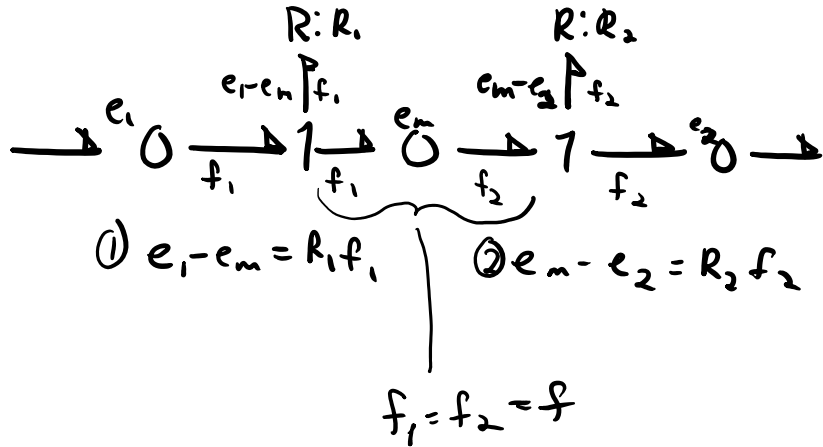 R:R₁ R:R₂
e₁-eₘ f₁ eₘ-e₂ f₂
e₁ 0 1 eₘ 0 1 e₂ 0
f₁ f₁ f₂ f₂
① e₁-eₘ = R₁f₁ ② eₘ - e₂ = R₂f₂
f₁ = f₂ = f